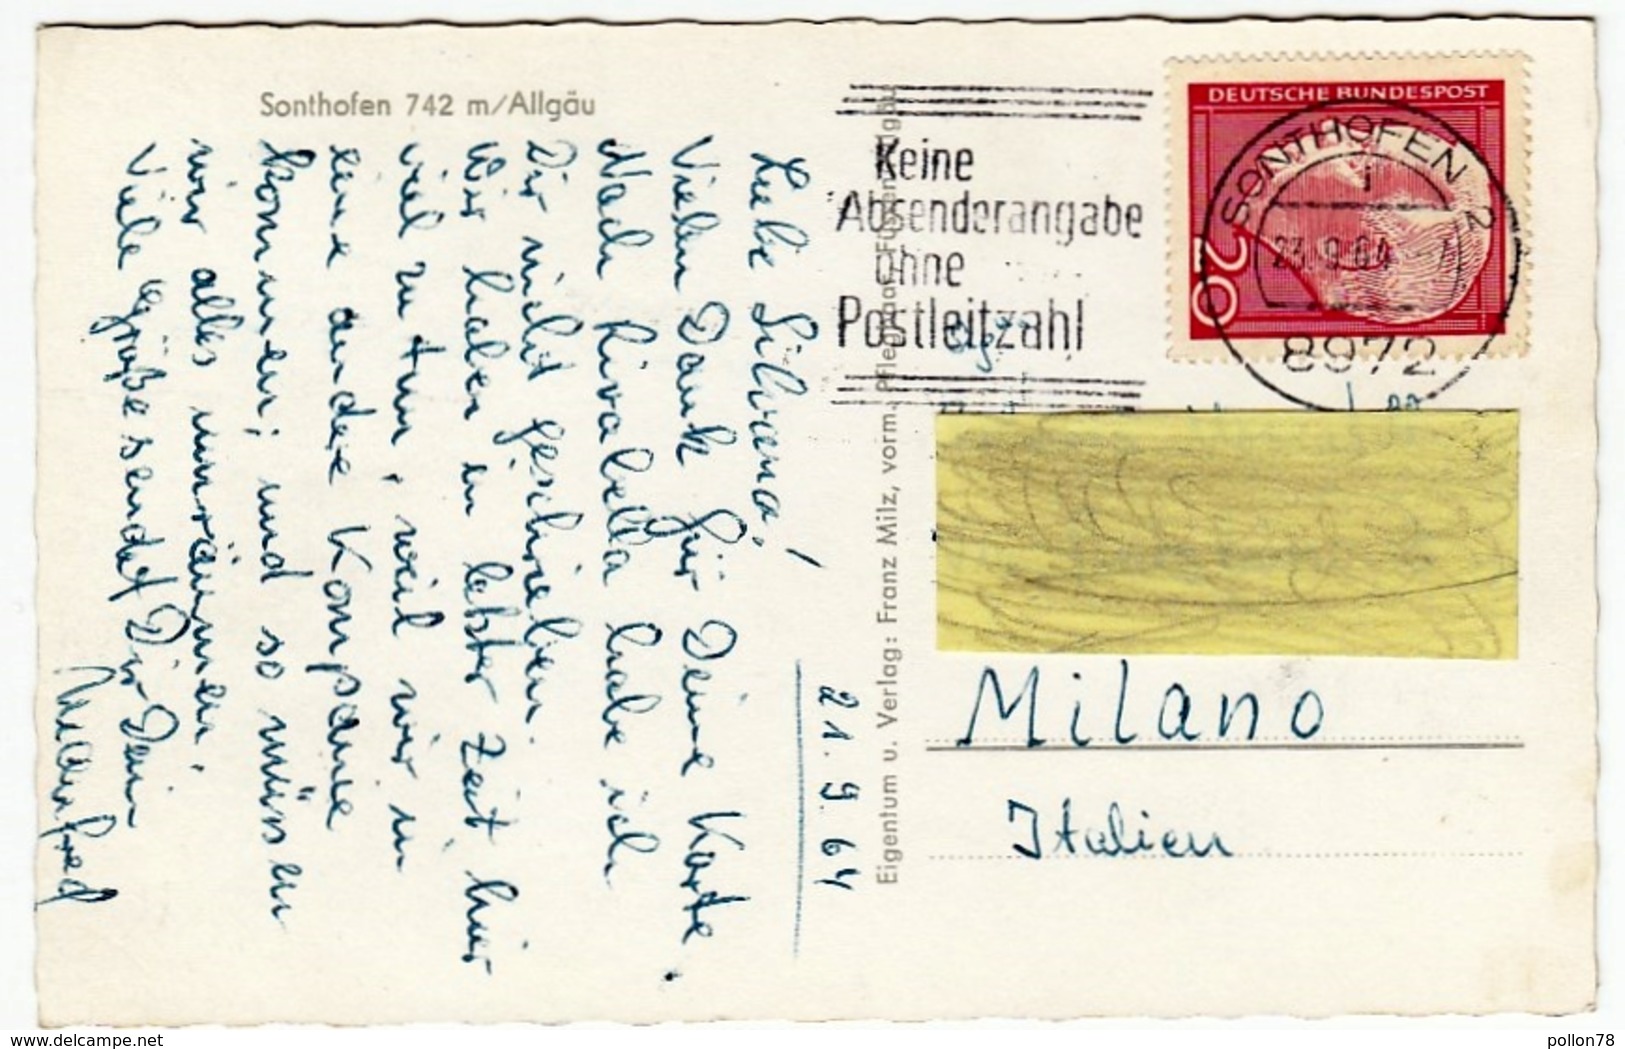 Sonthofen 742 m/Allgäu
21. 9. 64
Liebe Silvana!
Vielen Dank für Deine Karte.
Nach Rivabella habe ich
Dir nicht geschrieben.
Wir haben in letzter Zeit hier
viel zu tun, weil wir in
eine andere Kompanie
kommen; und so müssen
wir alles umräumen.
Viele Grüße sendet Dir Dein
Manfred
Eigentum u. Verlag: Franz Milz, vorm.
Keine
Absenderangabe
ohne
Postleitzahl
DEUTSCHE BUNDESPOST
20
SONTHOFEN 2
i
23.9.64
8972
Milano
Italien
delcampe.net
pollon78